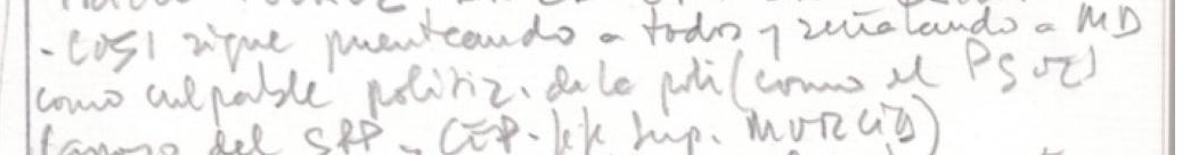 - COSI sigue puenteando a todos y señalando a MD
como culpable politiz. de la poli (como el PSOE)
del SPP - CEP. kk Sup. MURCIA)